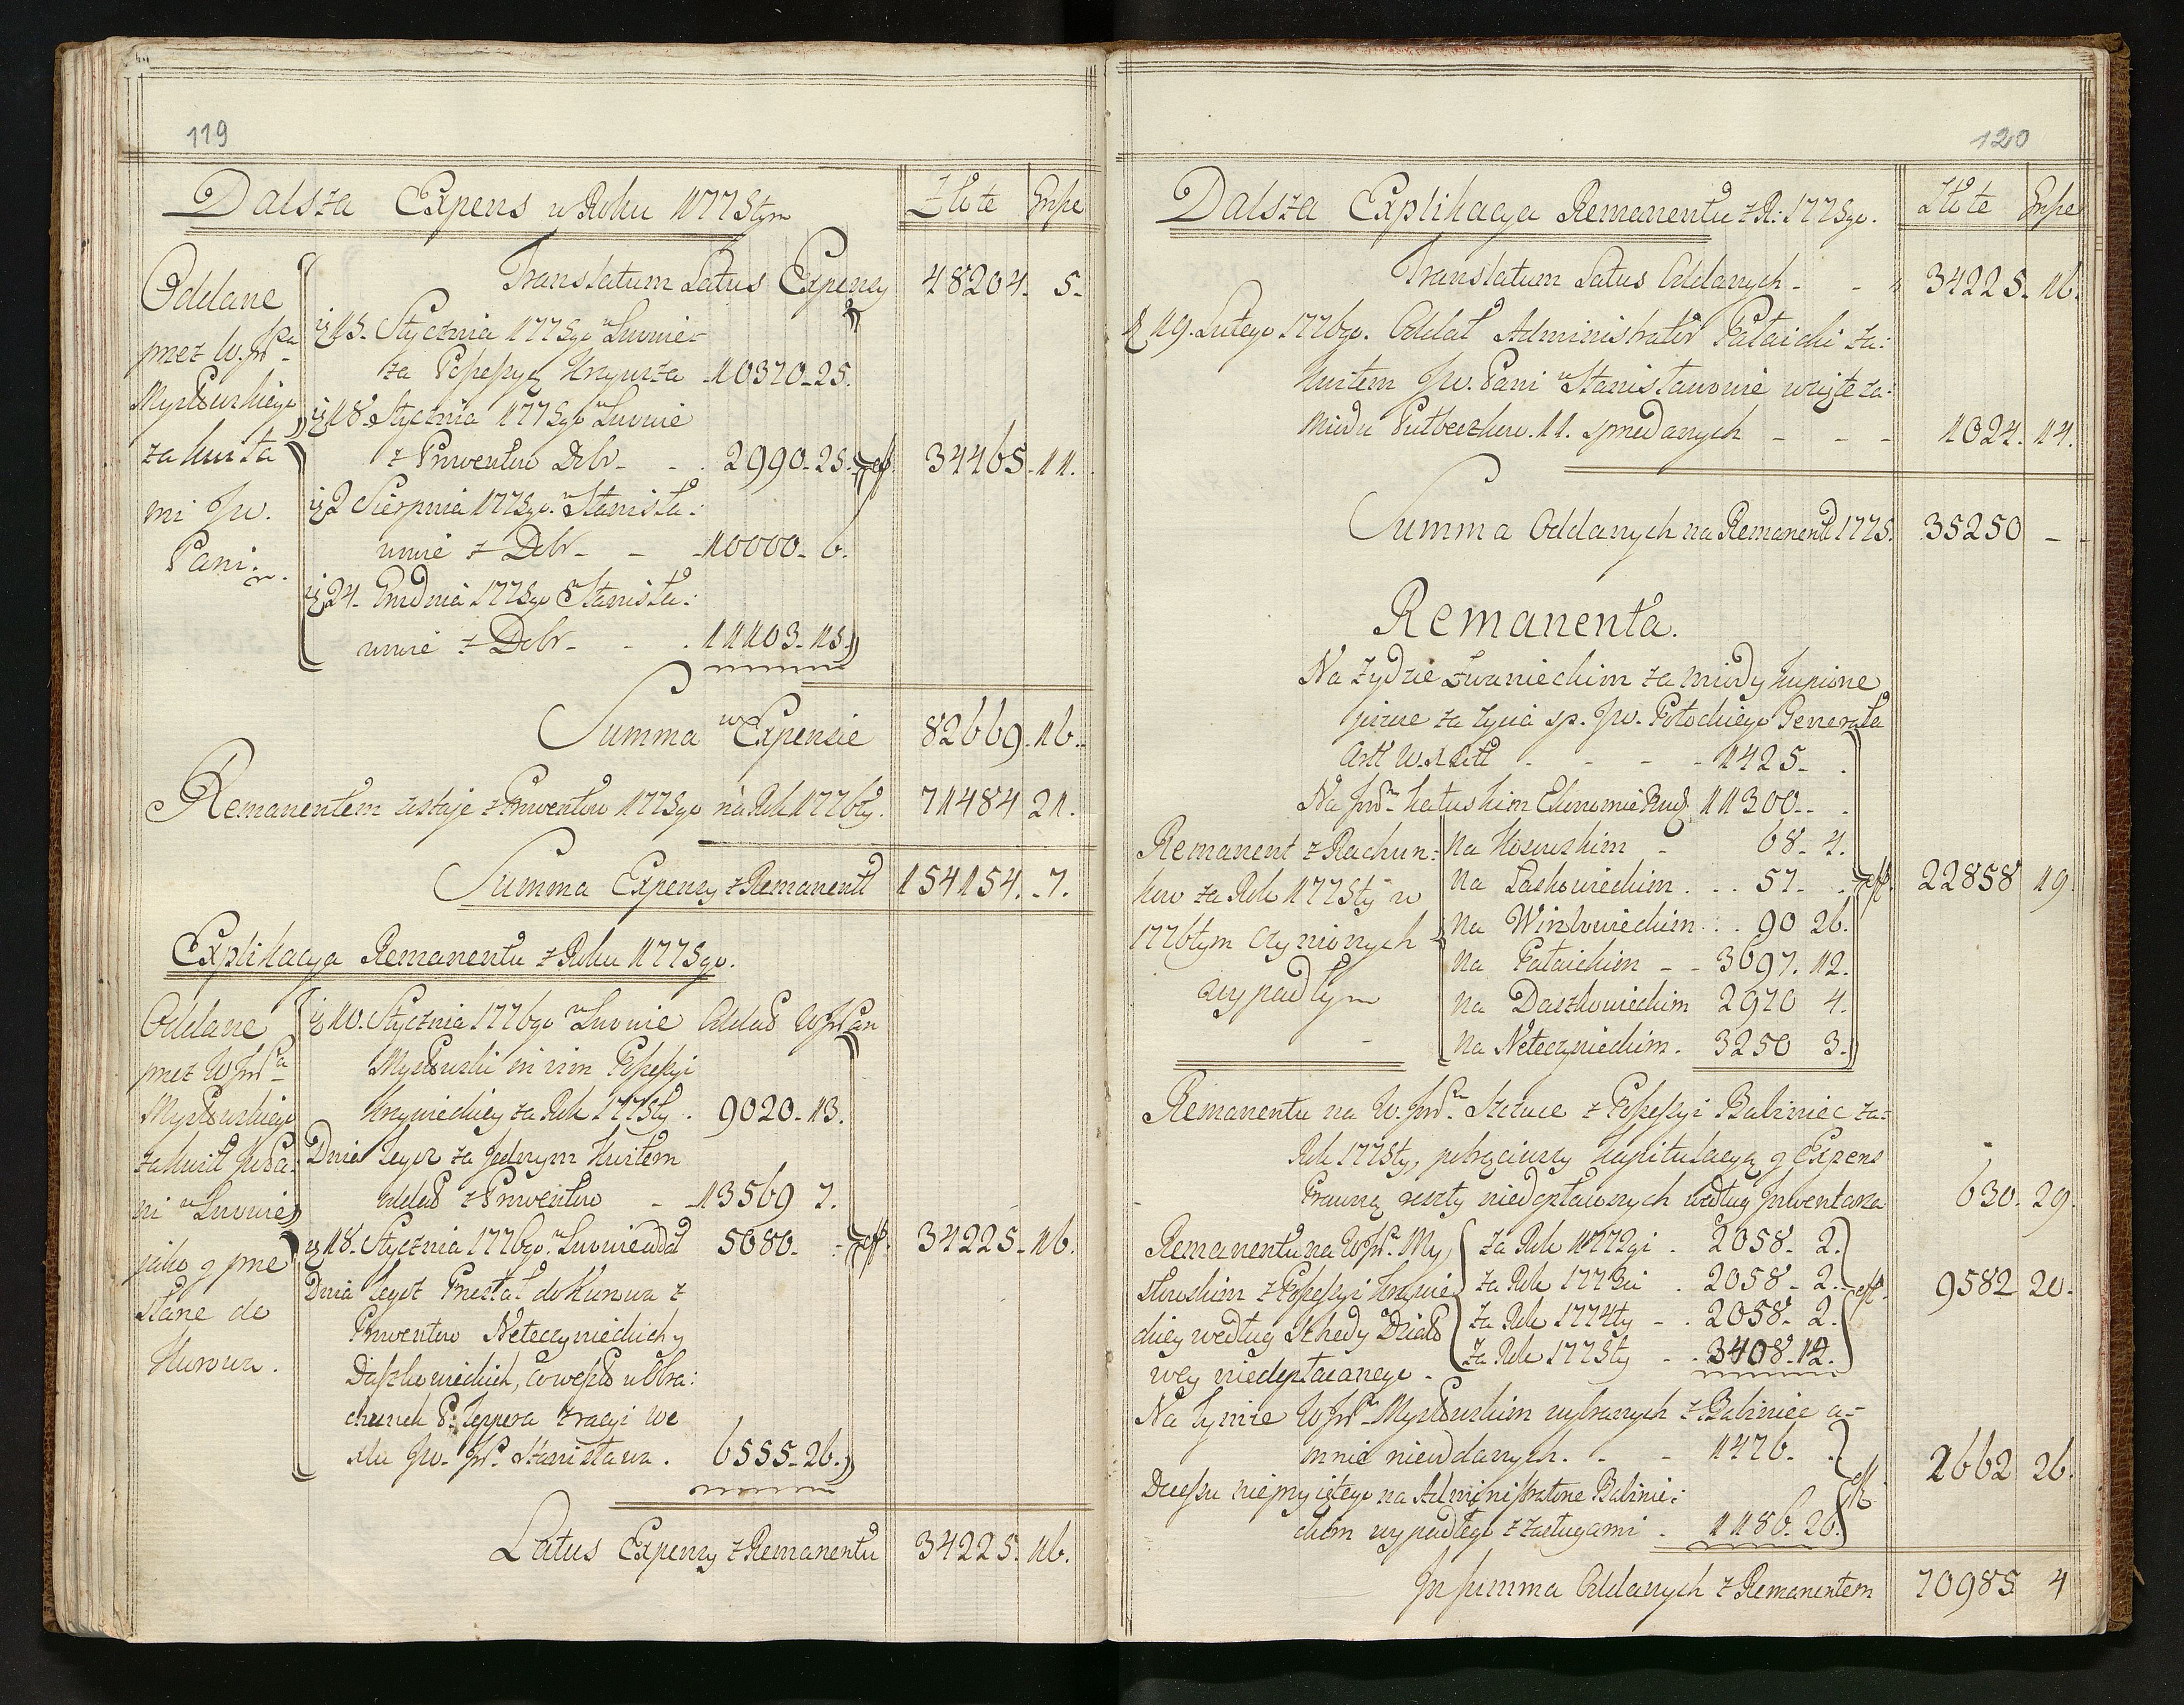 119
Dalsza Expens w Roku 1775tym
Złote Grosze
Translatum Latus Expensy 48204. 5.
Oddane
przez W. JP
Mysłowskiego
za kwita
mi Jw.
Pani.
15. Stycznia 1775go Lwowie
za Possessyą 10370-25.
18. Stycznia 1775go Lwowie
z Prowentów Dóbr - - 2990-25. 34465. 11.
2 Sierpnia 1775go. Stanisła:
wowie z Dóbr - - 10000- 6.
24. Grudnia 1775go Stanisła:
wowie z Dóbr - - 11103-15.
Summa w Expensie 82669. 16.
Remanentem zostaje z Prowentów 1775go na Rok 1776ty. 71484 21.
Summa Expensy z Remanentē 154154. 7.
Explikacya Remanentu z Roku 1775go.
Oddane
przez W JP
Mysłowskiego
za kwit Jw Pa:
ni w Lwowie
jako y prze
słane do
Kurowa.
10. Stycznia 1776go w Lwowie Oddał W JPan
Mysłowski in vim Possessyi
za Rok 1775ty. 9020-13.
Dnia tegoż za jednym Kwitem
oddał z Prowentów - 13569 7.
18. Stycznia 1776go. w Lwowie oddał 5080. 34225. 16.
Dnia tegoż Przesłał do Kurowa z
Prowentów Neteczynieckich y
Daszkowieckich, co weszło w Obra:
chunek P. Teppera z racyi We
xlu Jw. JP. Stanisława. 6555-26.
Latus Expensy z Remanentu 34225. 16.
120
Dalsza Explikacya Remanentu z R: 1775go.
Złote Grosze
Translatum Latus Oddanych - - 34225. 16.
19. Lutego 1776go. Oddał Administrator Pataicki za:
kwitem Jw. Pani w Stanisławowie wzięte za:
miodu Pułbeczków. 11. sprzedanych - - - 1024. 14.
Summa Oddanych na Remanentē 1775. 35250 -
Remanenta.
Na Żydzie Żwanieckim za miody kupione
jeszcze za życia sp. Jw. Potockiego Generała
Artt W. X Litt - - - 1425.
Na JP. Ekonomie 11300.
Remanent z Rachun:
ków za Rok 1775ty w
1776tym czynionych
wypadły
na Kosowskim - 68. 4.
na Laskowieckim. . . 57. 22858 19.
na Winkowieckim . . . 90 26.
na Pataickim - - 3697. 12.
na Daszkowieckim 2970 4.
na Neteczynieckim. 3250 3.
Remanentu na W. JP. Szczuce z Possessyi Babiniec za:
Rok 1775ty, potrąciwszy kapitulacyą y Expens
Prawną reszty niedopłaconych według Inwentarza 630. 29.
Remanentu na W JP. My
słowskim z Possessyi
według Schedy Działo
wey niedopłaconego.
za Rok 1772gi . 2058- 2.
za Rok 1773ci . 2058- 2. 9582 20.
za Rok 1774ty - . 2058- 2.
za Rok 1775ty - . 3408. 12.
Na tymże W JP. Mysłowskim wybranych z Babiniec a-
mnie nieoddanych. - - 1476.
1662 26.
Decessu nieprzyjętego na Administratorze Babiniec:
ckim wypadłego z zasługami . 1186. 26.
In summa Oddanych z Remanentem 70985 4